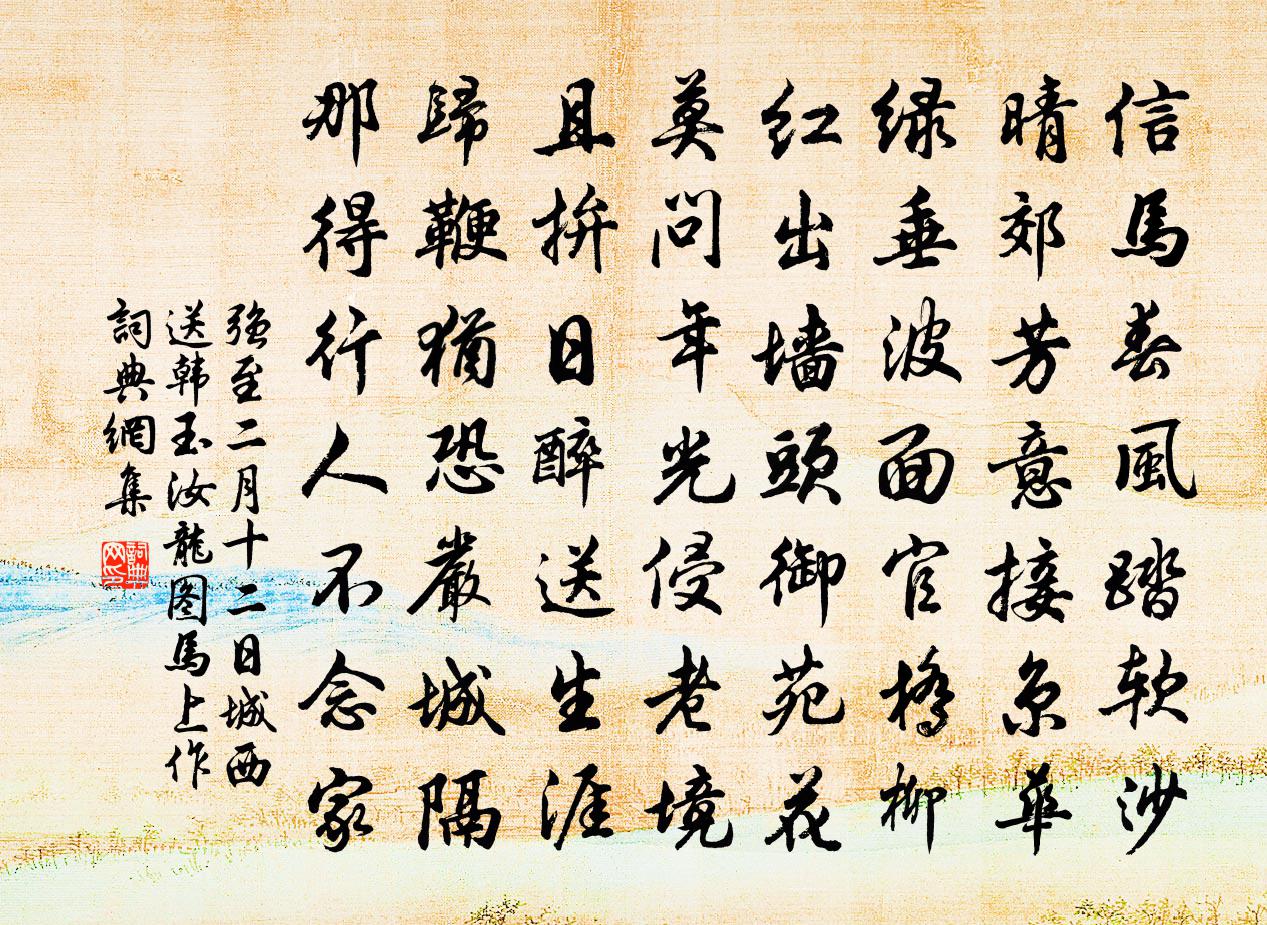 信馬春風踏软沙
晴郊芳意接京華
绿垂波面官橋柳
红出墙頭御苑花
莫問年光侵老境
且拚日醉送生涯
歸鞭猶恐嚴城隔
那得行人不念家
強至二月十二日城西
送韩玉汝龍图馬上作
詞典網集
詞典网印